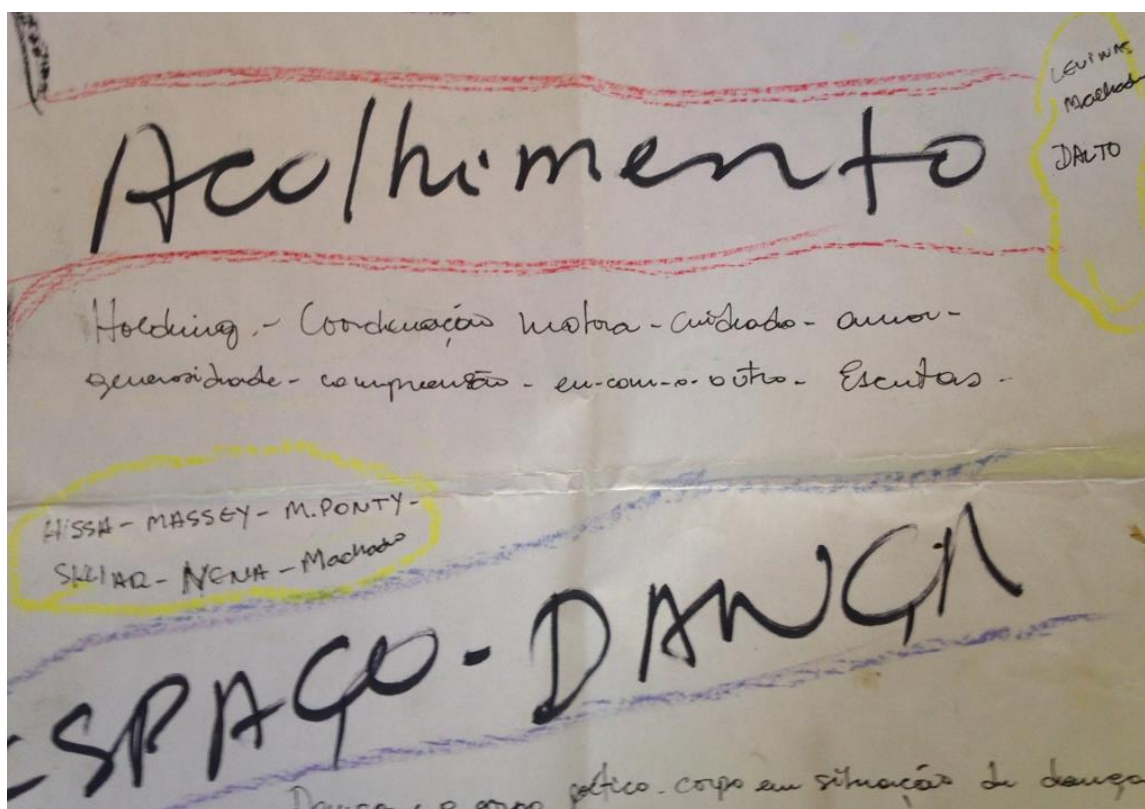 LEVINAS
Machado
DALTO
Acolhimento
Holding - Coordenação motora - cuidado - amor -
generosidade - compreensão - eu-com-o-outro - Escutas -
HISSA - MASSEY - M.PONTY -
SKLIAR - NENA - Machado
ESPAÇO-DANÇA
Dança e o corpo poético. corpo em situação de dança